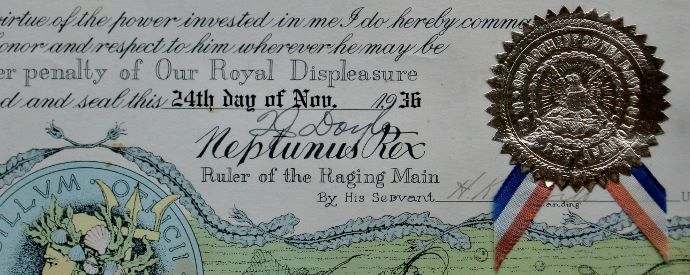 virtue of the power invested in me I do hereby comma
honor and respect to him wherever he may be
er penalty of Our Royal Displeasure
d and seal this 24th day of Nov. 1936
Neptunus Rex
Ruler of the Raging Main
By His Servant
anding